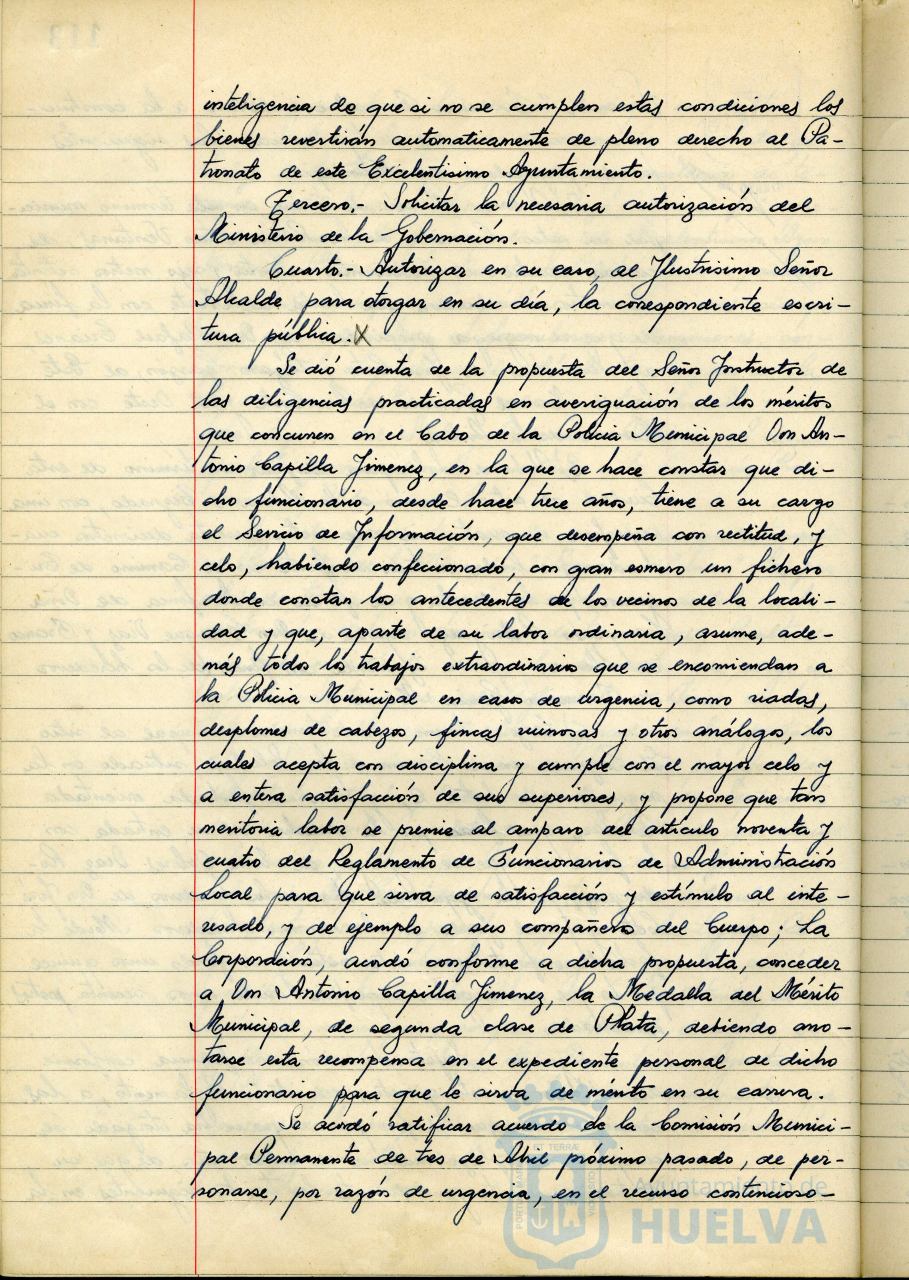 inteligencia de que si no se cumplen estas condiciones los
bienes revertirán automaticamente de pleno derecho al Pa-
tronato de este Excelentisimo Ayuntamiento.
Tercero.- Solicitar la necesaria autorización del
Ministerio de la Gobernación.
Cuarto.- Autorizar en su caso, al Ilustrisimo Señor
Alcalde para otorgar en su día, la correspondiente escri-
tura pública. X
Se dió cuenta de la propuesta del Señor Instructor de
las diligencias practicadas en averiguación de los méritos
que concurren en el Cabo de la Policia Municipal Don An-
tonio Capilla Jimenez, en la que se hace constar que di-
cho funcionario, desde hace trece años, tiene a su cargo
el Servicio de Información, que desempeña con rectitud, y
celo, habiendo confeccionado, con gran esmero un fichero
donde constan los antecedentes de los vecinos de la locali-
dad y que, aparte de su labor ordinaria, asume, ade-
más todos los trabajos extraordinarios que se encomiendan a
la Policia Municipal en casos de urgencia, como riadas,
desplomes de cabezos, fincas ruinosas y otros análogos, los
cuales acepta con disciplina y cumple con el mayor celo y
a entera satisfacción de sus superiores, y propone que tan
meritoria labor se premie al amparo del articulo noventa y
cuatro del Reglamento de Funcionarios de Administración
Local para que sirva de satisfacción y estímulo al inte-
resado, y de ejemplo a sus compañeros del Cuerpo; La
Corporación, acordó conforme a dicha propuesta, conceder
a Don Antonio Capilla Jimenez, la Medalla del Mérito
Municipal, de segunda clase de Plata, debiendo ano-
tarse esta recompensa en el expediente personal de dicho
funcionario para que le sirva de mérito en su carrera.
Se acordó ratificar acuerdo de la Comisión Munici-
pal Permanente de tres de Abril próximo pasado, de per-
sonarse, por razón de urgencia, en el recurso contencioso-
Ayuntamiento de
HUELVA